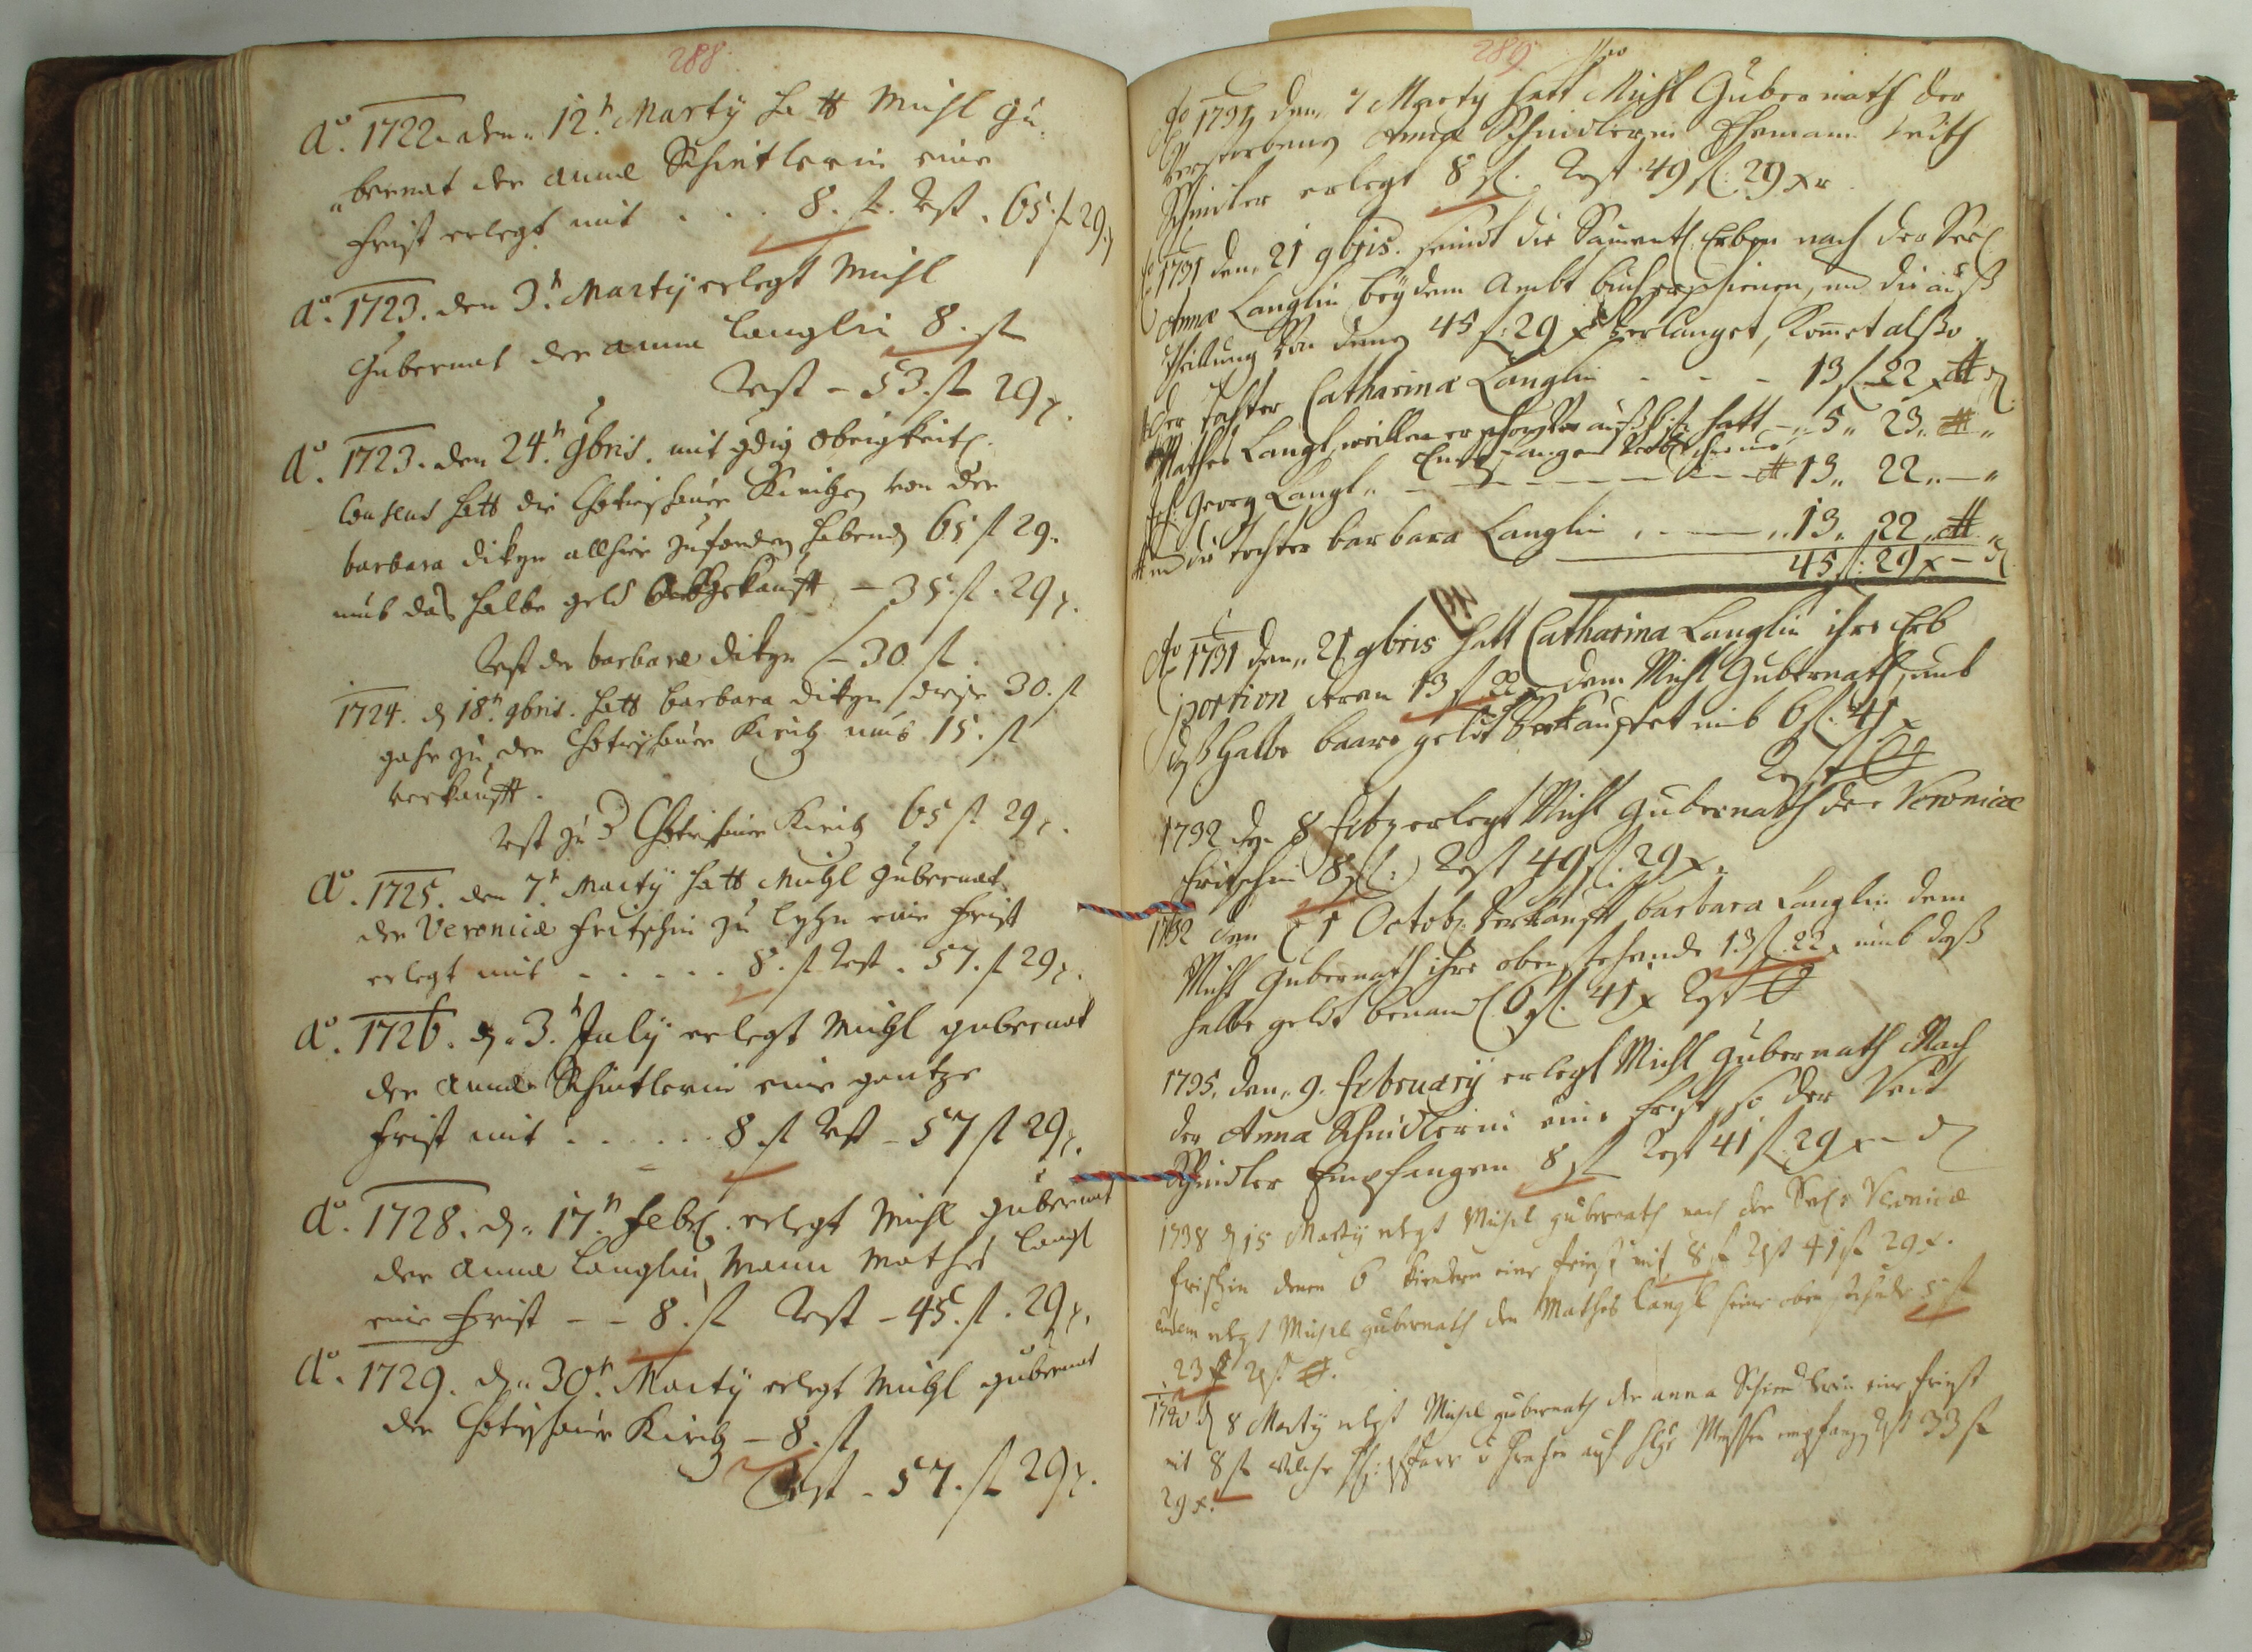 288.
Aõ. 1722. den. 12.t Marty hatt Michl Gu-
bernat der Annae Schintlerin eine
Frist erlegt mit . . . 8. fl. Rest. 65 fl 29 x
Aõ. 1723. den 3.t Marty erlegt Michl
Gubernat der Anna Langlin 8. fl
Rest – 53. fl 29 x.
Aõ. 1723. den 24.t 9bris. mit gdig obrigkeitl.
Consens hatt die Chotischauer Kirchen von der
barbara allhier zufordern habendn 65 fl 29.
umb das halbe geld Erkhaufft – 35. fl. 29 x.
Rest der barbara – 30 fl.
1724. dn 18.t 9bris. hatt barbara diese 30. fl
zu der Chotischauer Kirch umb 15. fl
verkaufft.
Rest zu d Chotischauer Kirch 65 fl 29 x.
Aõ. 1725. den 7.t Marty hatt Michl Gubernat
der Veronicae Fritschin zu eine Frist
erlegt mit - - - - . 8. fl Rest. 57. fl 29 x.
Aõ. 1726. dn. 3.t July erlegt Michl Gubernat
der Annae Schintlerin eine gantze
Frist mit . . . . . . 8 fl Rest – 57 fl 29 x.
Aõ. 1728. dn. 17.t Febr. erlegt Michl Gubernat
der Annae Langlin Mann Mathes Langl
eine Frist - - 8. fl Rest – 45. fl. 29 x.
Aõ. 1729. dn. 30.t Marty erlegt Michl Gubernat
der Chotischauer Kirch – 8. fl
Rest – 57. fl 29 x.
289.
Aõ 1731 den 7 Marty hatt Michl Gubernath der
verstorbenen Annae Schindlerin Ehemann Veith
Schindler erlegt 8 fl. Rest 49 fl: 29 xr.
Aõ 1731 den 21 9bris. seindt die Sammentl. Erben nach der Seel.
Annae Langlin bey dem Ambt buch erschienen, und die auß
theillung von denen 45 fl: 29 x verlanget, Kommet alßo
Der tochter Catharinae Langlin - - - 13 fl 22 x
Mathes Langl, weillen er schon Vorauß hatt – „ 5 „ 23 „
Empfangen
Georg Langl „ – – – – – – 13 „ 22 „ – „
Und die tochter barbara Langlin „ – „ 13 „ 22 „
45 fl: 29 x – d
Aõ 1731 den „ 21 9bris hatt Catharina Langlin ihre Erb
portion deren 13 fl 22 x dem Michl Gubernath, umb
daß Halbe baare geldt Verkauffet mit 6 fl. 41 x
Rest
1732 den 8 Feb: erlegt Michl Gubernath der Veronicae
Fritschin 8 fl: Rest 49 fl 29 x.
1732 den 1 Octob: Verkaufft barbara Langlin dem
Michl Gubernath ihre oben stehende 13 fl. 22 x umb daß
halbe geldt 6 fl. 41 x Rest
1735. den „ 9. February erlegt Michl Gubernath Nach
der Anna Schindlerin eine Frist, so der Veit
Schindler Empfangen 8 fl Rest 41 fl: 29 x – d
1738 dn 15 Marty erlegt Michel Gubernath nach der Seel. Veronicae
Frischin denen 6 kindern eine Frist mit 8 fl Rest 41 fl 29 x.
Eodem erlegt Michel Gubernath den Mathes Langl seine oben stehende 5 fl
23 x Rest
1740 dn 8 Marty erlegt Michel Gubernath der Anna Schindlerin eine Frist
mit 8 fl Welche auf Hl. Messen empfangen Rest 33 fl
29 x.